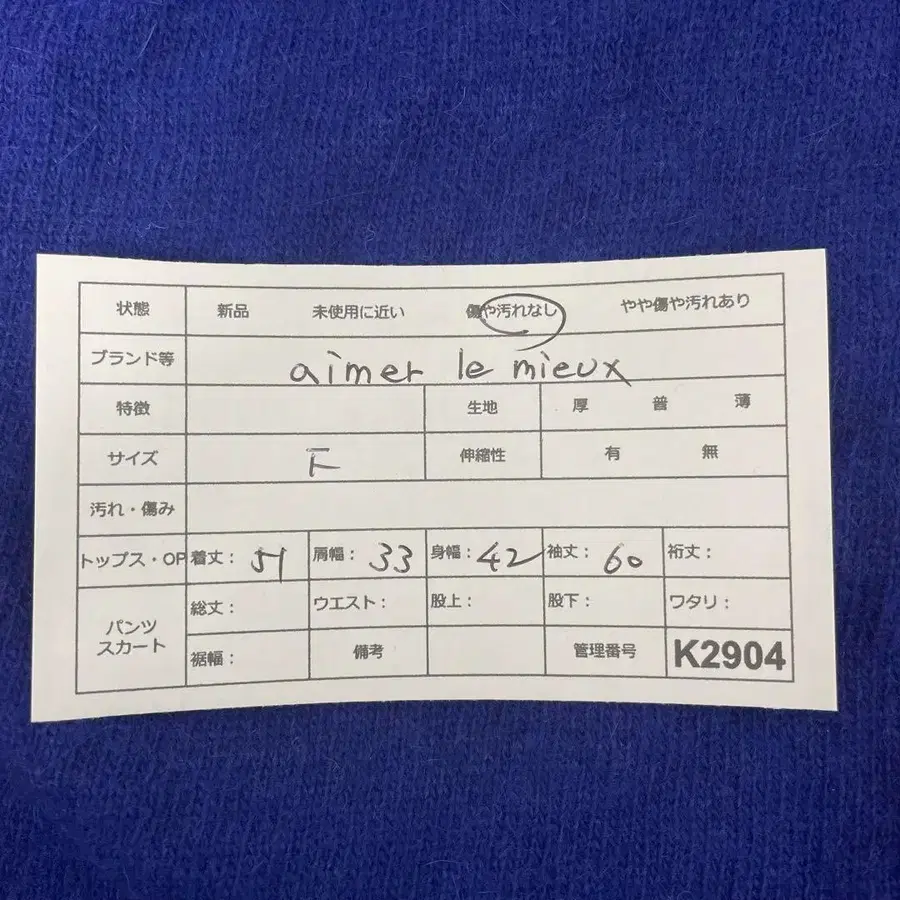 状態 新品 未使用に近い 傷や汚れなし やや傷や汚れあり
ブランド等 aimer le mieux
特徴 生地 厚 普 薄
サイズ F 伸縮性 有 無
汚れ・傷み
トップス・OP 着丈： 51 肩幅： 33 身幅： 42 袖丈： 60 裄丈：
パンツ スカート 総丈： ウエスト： 股上： 股下： ワタリ：
裾幅： 備考 管理番号 K2904